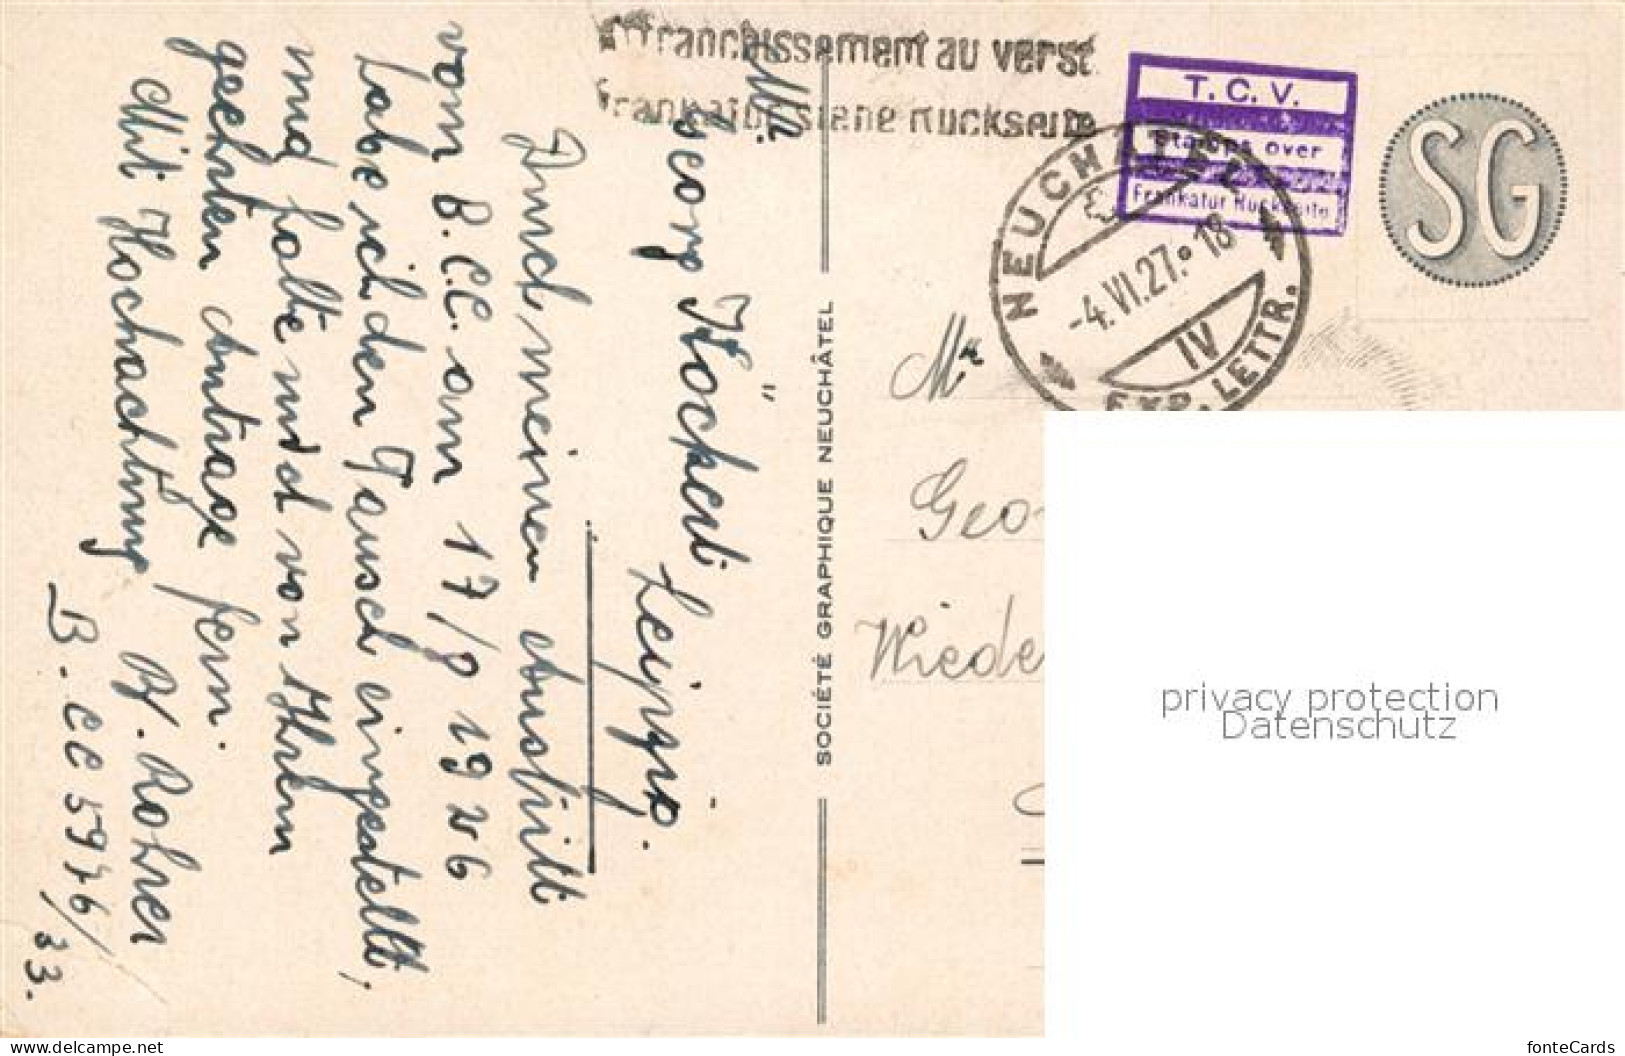 Affranchissement au verso
Frankatur siehe Rückseite
T. C. V.
Stamps over
Frankatur Rückseite
NEUCHATEL
-4.VI.27.18
IV
EXP. LETTR.
SG
Georg Köckert
Leipzig.
Durch meinen Austritt
vom B.C.C. am 17/9 1926
habe ich den Tausch eingestellt,
und halte mich von Ihrem
geehrten Antrage fern.
Mit Hochachtung Rohrer
B. CC 5976/
33.
SOCIÉTÉ GRAPHIQUE NEUCHÂTEL
Mr
Geo
Wiede
privacy protection
Datenschutz
www.delcampe.net
fonteCards